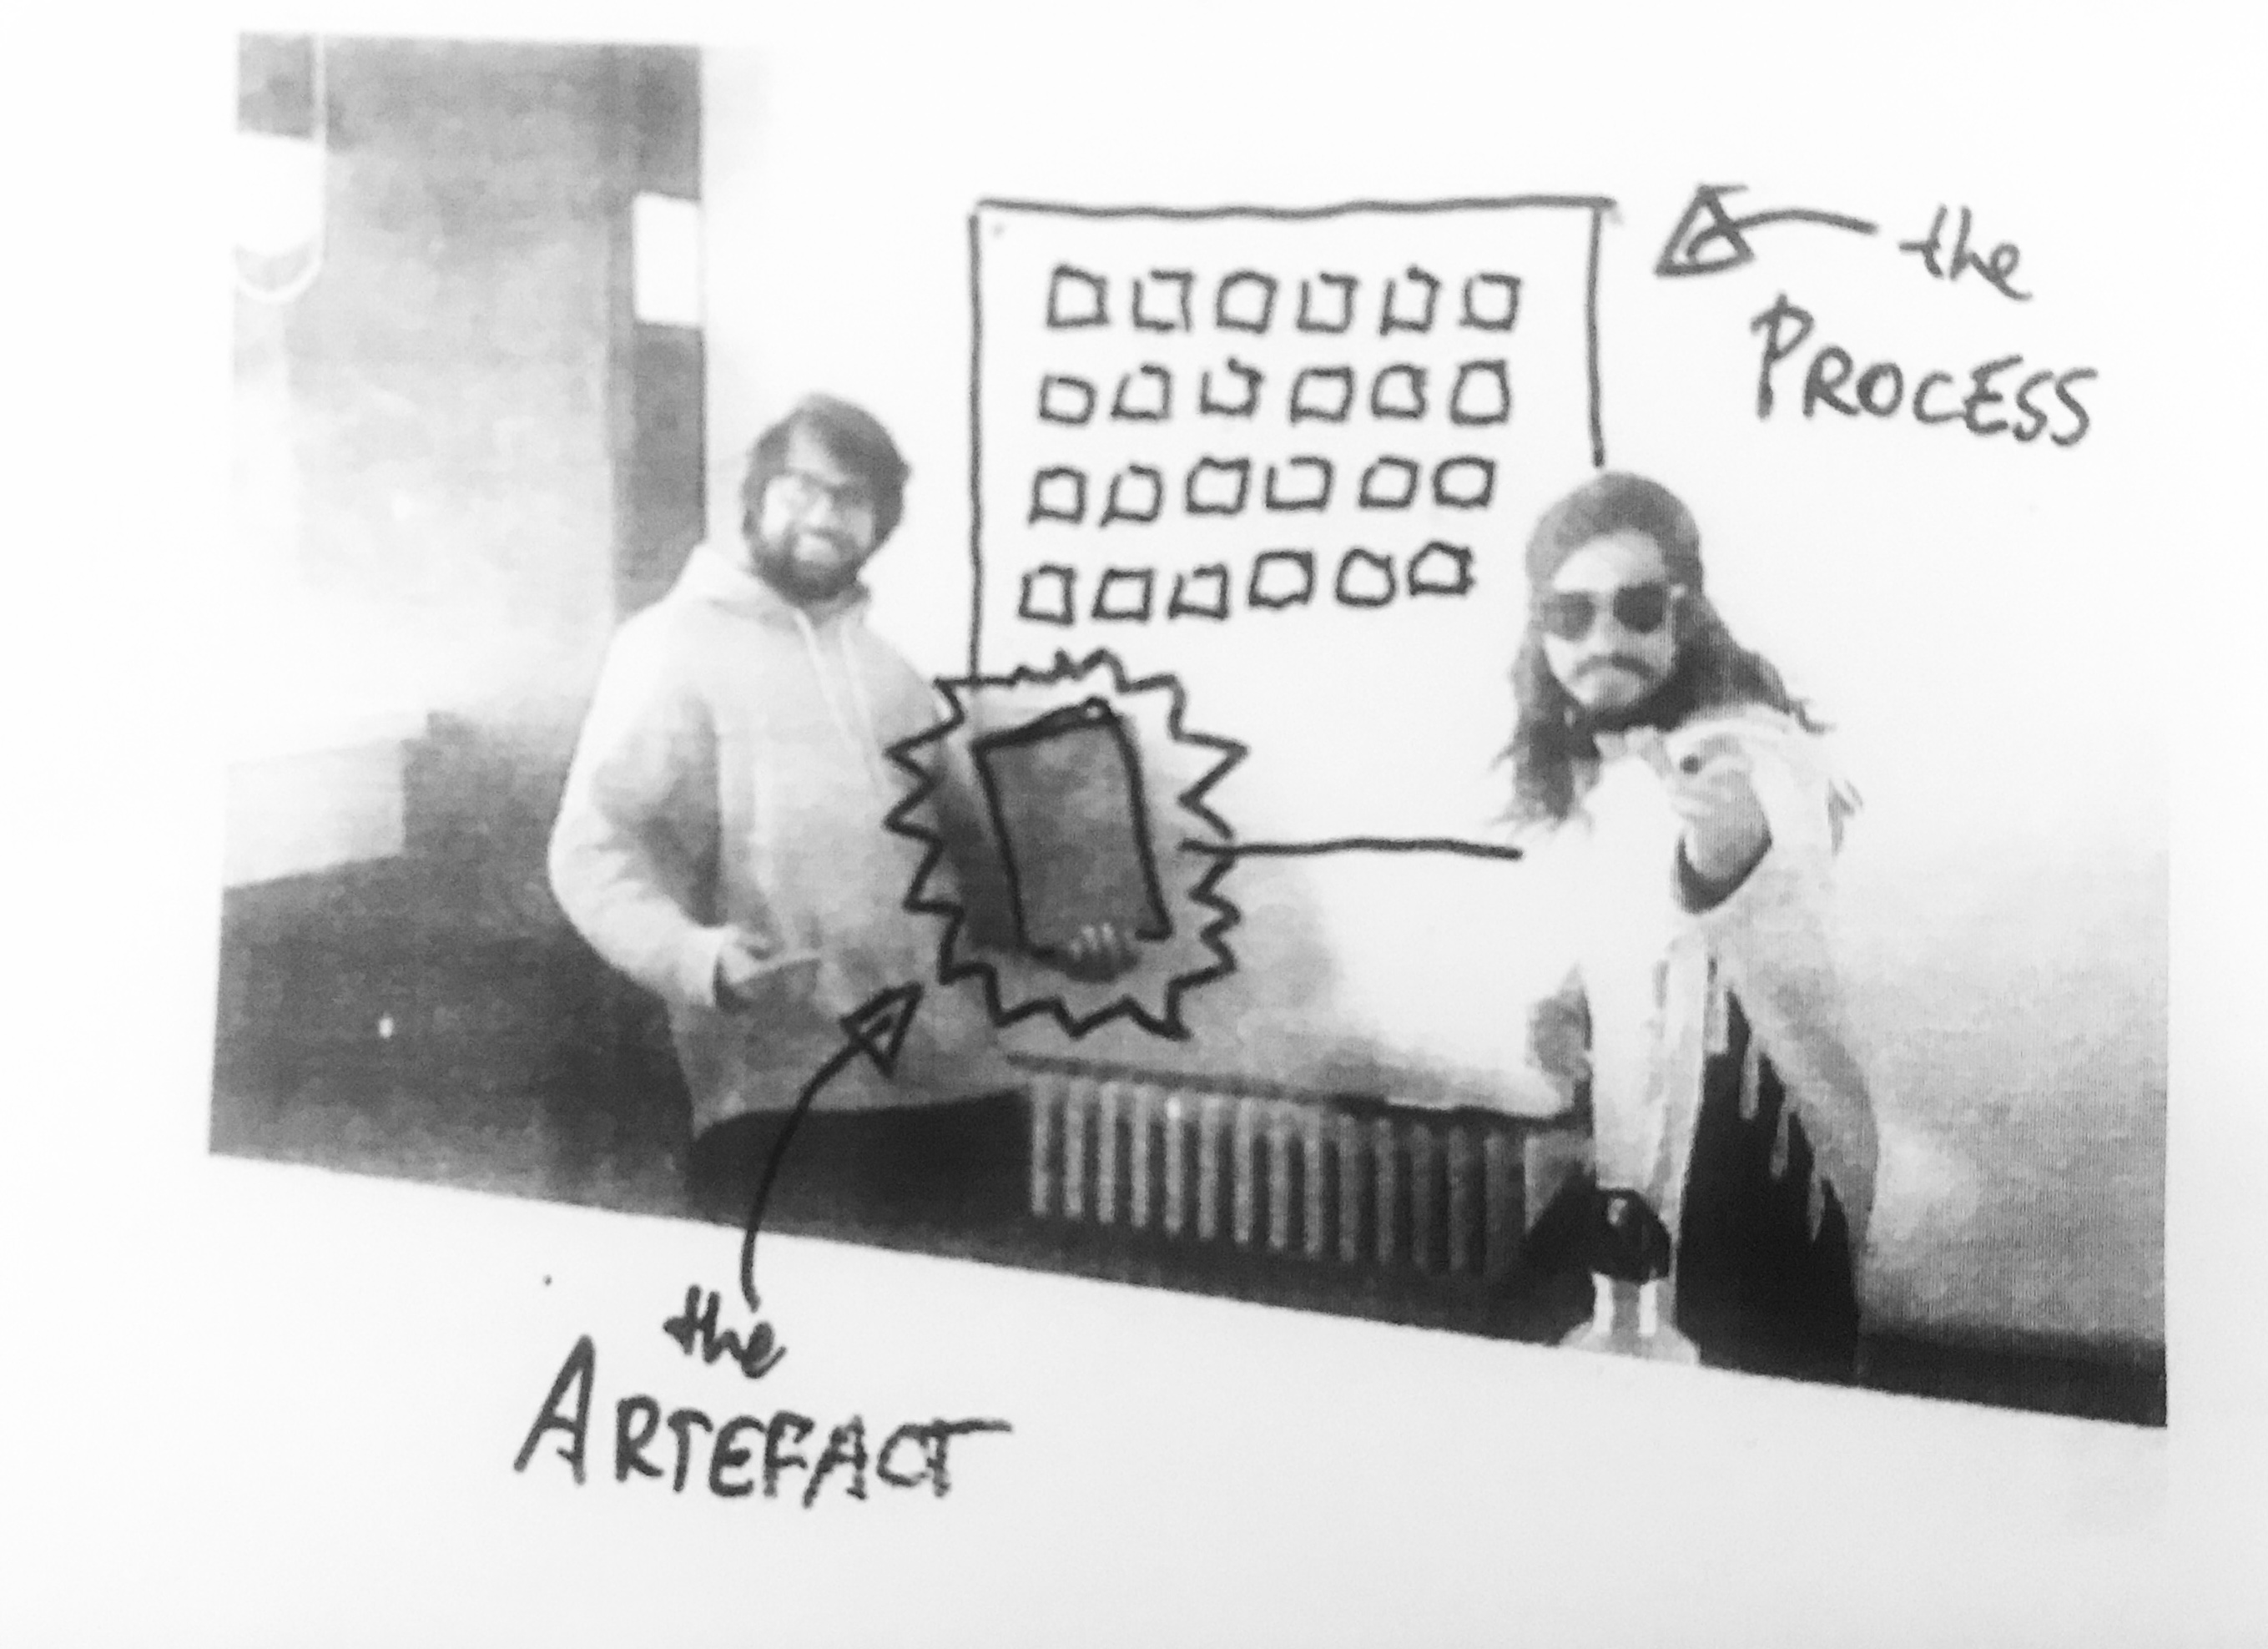 the
PROCESS
the
ARTEFACT